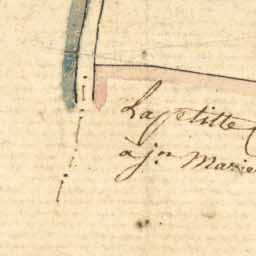 La petitte
à jn Marie